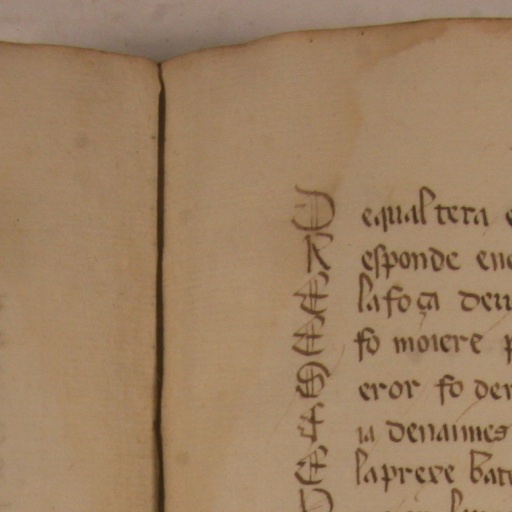 D equal tera e
R esponde ene
E la foça deu
E fo moiere p
S eror fo der
E ia denaimes
E la prexe bat